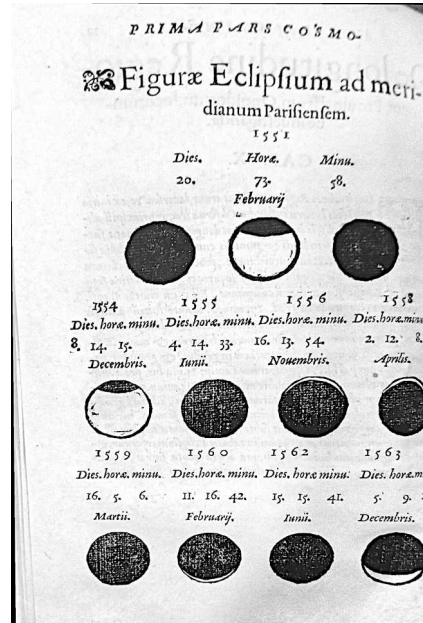 PRIMA PARS COSMO-
Figuræ Eclipſium ad meri-
dianum Pariſienſem.
1551
Dies. Horæ. Minu.
20. 73. 58.
Februarij
1554 1555 1556 1558
Dies. horæ. minu. Dies. horæ. minu. Dies. horæ. minu. Dies. horæ minu
8. 14. 15. 4. 14. 33. 16. 13. 54. 2. 12. 8.
Decembris. Iunii. Nouembris. Aprilis.
1559 1560 1562 1563
Dies. horæ minu. Dies. horæ. minu. Dies. horæ minu. Dies. horæ. m
16. 5. 6. 11. 16. 42. 15. 15. 41. 5. 9.
Martii. Februarij. Iunii. Decembris.